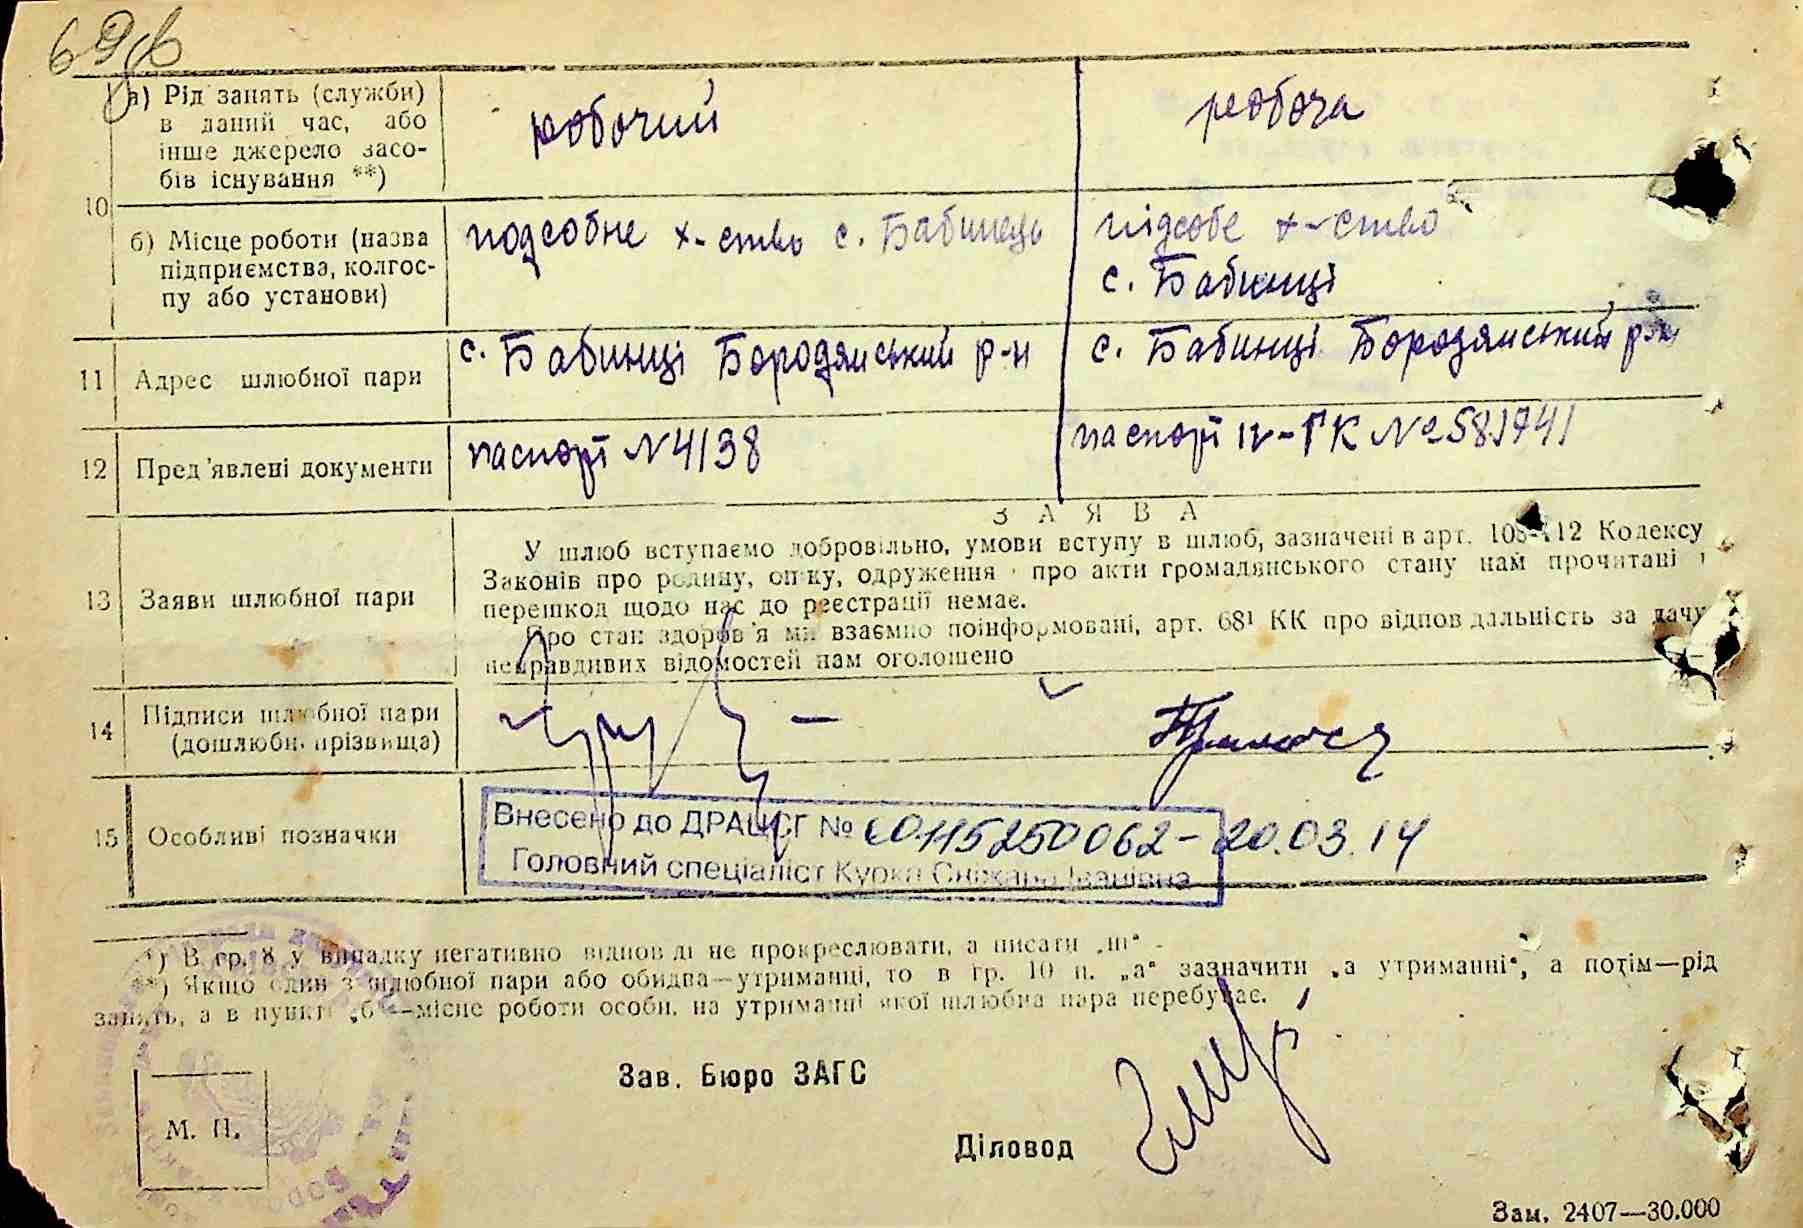 69
а) Рід занять (служби)
в даний час, або
інше джерело засо-
бів існування **)
робочий
робоча
10
б) Місце роботи (назва
підприємства, колгос-
пу або установи)
подсобне х-ство с. Бабинець
підсобе х-ство
с. Бабинці
11
Адрес шлюбної пари
с. Бабинці Бородянський р-н
с. Бабинці Бородянський р-н
12
Пред'явлені документи
паспорт N 4138
паспорт IV-ГК № 581741
13
Заяви шлюбної пари
ЗАЯВА
У шлюб вступаємо добровільно, умови вступу в шлюб, зазначені в арт. 108-112 Кодексу
Законів про родину, опіку, одруження і про акти громадянського стану нам прочитані і
перешкод щодо нас до реєстрації немає.
Про стан здоров'я ми взаємно поінформовані, арт. 68¹ КК про відповідальність за дачу
неправдивих відомостей нам оголошено
14
Підписи шлюбної пари
(дошлюбні прізвища)
15
Особливі позначки
Внесено до ДРАЦСГ № 00115250062 - 20.03.14
Головний спеціаліст Курка Сніжана Іванівна
*) В гр. 8 у випадку негативно відповіді не прокреслювати, а писати „ні“.
**) Якщо один з шлюбної пари або обидва—утриманці, то в гр. 10 п. „а“ зазначити „а утриманні“, а потім—рід
занять, а в пункті „б“—місце роботи особи, на утриманні якої шлюбна пара перебуває.
Зав. Бюро ЗАГС
М. П.
Діловод
Зам. 2407—30.000